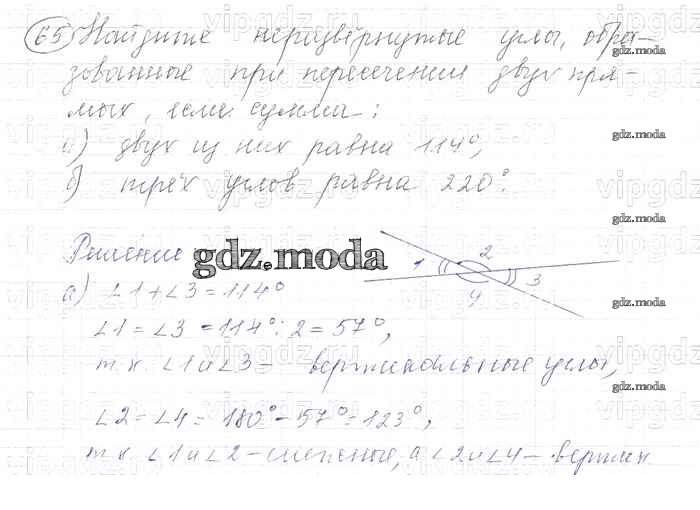 65 Найдите неразвёрнутые углы, обра-
зованные при пересечении двух пря-
мых, если сумма:
а) двух из них равна 114°,
б) трёх углов равна 220°.
Решение
gdz.moda
а) ∠1+∠3=114°
∠1=∠3=114°:2=57°,
т.к. ∠1 и ∠3 – вертикальные углы,
∠2=∠4=180°-57°=123°,
т.к. ∠1 и ∠2 – смежные, а ∠2 и ∠4 – вертик.
1
2
3
4
gdz.moda
gdz.moda
gdz.moda
gdz.moda
gdz.moda
gdz.moda